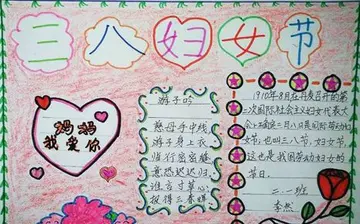 三八妇女节
妈妈
我爱你
游子吟
慈母手中线
游子身上衣
临行密密缝
意恐迟迟归
谁言寸草心
报得三春晖
1910年8月在丹麦召开的第
二次国际社会主义妇女代表大
会上确定三月八日是国际劳动妇
女节,也叫三八节,妇女节,
这也是我国劳动妇女的
节日。
二.一班
李然